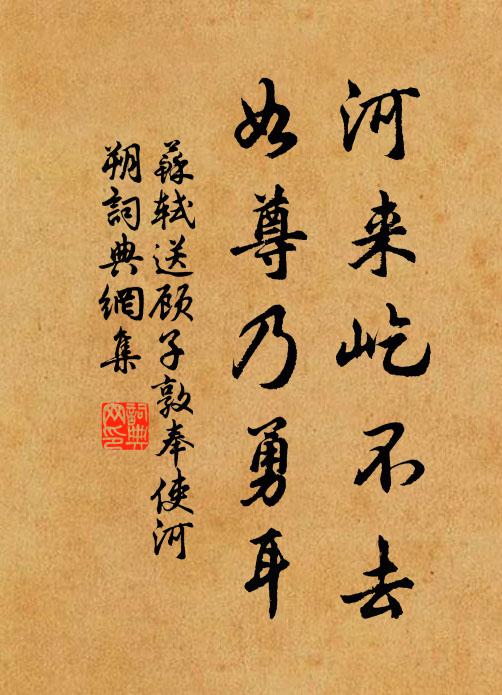 河来屹不去
如尊乃勇耳
蘇軾送顾子敦奉使河
朔詞典網集
詞典
网印